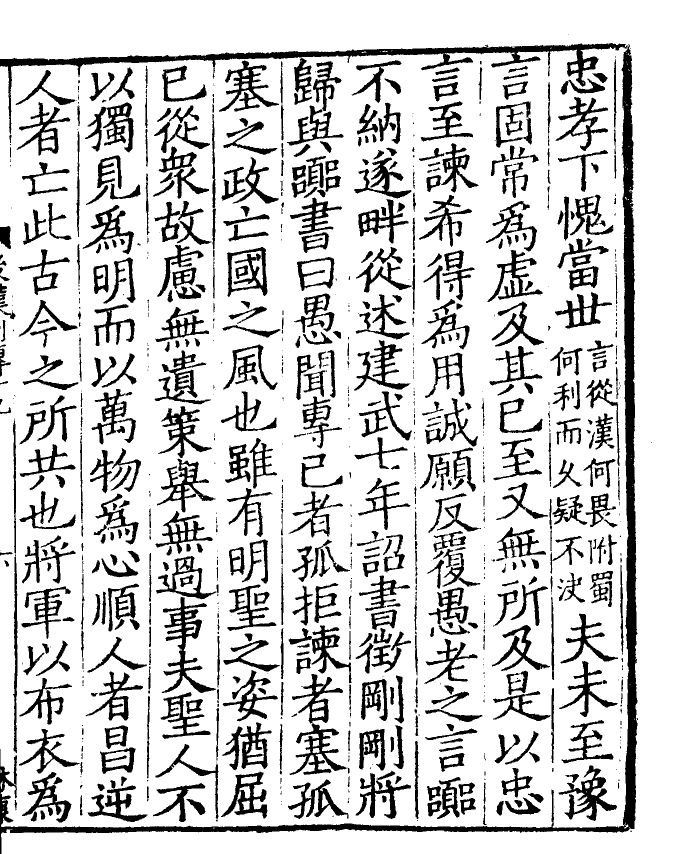 忠孝下愧當丗言從漢何畏附蜀何利而乆疑不決夫未至豫
言固常爲虛及其已至又無所及是以忠
言至諫希得爲用誠願反覆愚老之言嚻
不納遂畔從述建武七年詔書徵剛剛將
歸與嚻書曰愚聞專己者孤拒諫者塞孤
塞之政亡國之風也雖有明聖之姿猶屈
已從衆故慮無遺策舉無過事夫聖人不
以獨見爲明而以萬物爲心順人者昌逆
人者亡此古今之所共也將軍以布衣爲